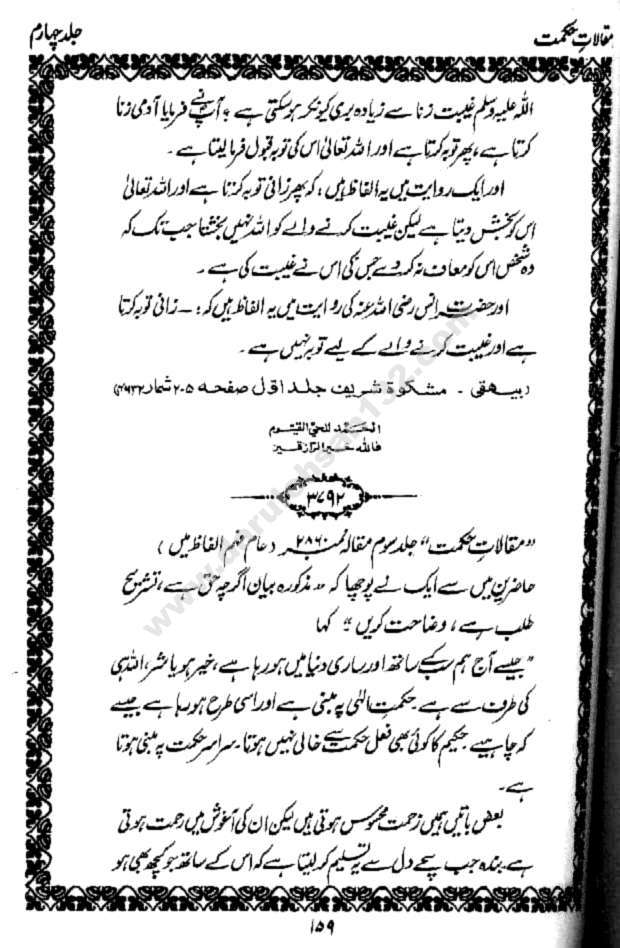 مقالاتِ حکمت
جلد چہارم
اللہ علیہ وسلم غیبت زنا سے زیادہ بری کیونکر ہو سکتی ہے ؟ آپ نے فرمایا آدمی زنا
کرتا ہے ، پھر توبہ کرتا ہے اور اللہ تعالیٰ اس کی توبہ قبول فرما لیتا ہے ۔
اور ایک روایت میں یہ الفاظ ہیں ، کہ پھر زانی توبہ کرتا ہے اور اللہ تعالیٰ
اس کو بخش دیتا ہے لیکن غیبت کرنے والے کو اللہ نہیں بخشتا جب تک کہ
وہ شخص اس کو معاف نہ کردے جس کی اس نے غیبت کی ہے ۔
اور حضرت انس رضی اللہ عنہ کی روایت میں یہ الفاظ ہیں کہ :۔ زانی توبہ کرتا
ہے اور غیبت کرنے والے کے لیے توبہ نہیں ہے ۔
(بیهقی ۔ مشکوٰة شریف جلد اول صفحہ ۲۰۵ شمار ۴۶۳۲)
الحمد للحی القیوم
فاللہ خیر الرازقین
۳۷۹۲
"مقالاتِ حکمت" جلد سوم مقالہ نمبر ۲۸۶۰ (عام فہم الفاظ میں)
حاضرین میں سے ایک نے پوچھا کہ "مذکورہ بیان اگرچہ حق ہے ، تشریح
طلب ہے ، وضاحت کریں" کہا
"جیسے آج ہم سب کے ساتھ اور ساری دنیا میں ہو رہا ہے ، خیر ہو یا شر ، اللہ ہی
کی طرف سے ہے ۔ حکمتِ الٰہی پہ مبنی ہے اور اسی طرح ہو رہا ہے جیسے
کہ چاہیے ۔ حکیم کا کوئی بھی فعل حکمت سے خالی نہیں ہوتا ۔ سراسر حکمت پہ مبنی ہوتا
ہے ۔
بعض باتیں ہمیں زحمت محسوس ہوتی ہیں لیکن ان کی آغوش میں رحمت ہوتی
ہے ۔ بندہ جب سچے دل سے یہ تسلیم کر لیتا ہے کہ اس کے ساتھ جو کچھ بھی ہو
۱۵۹